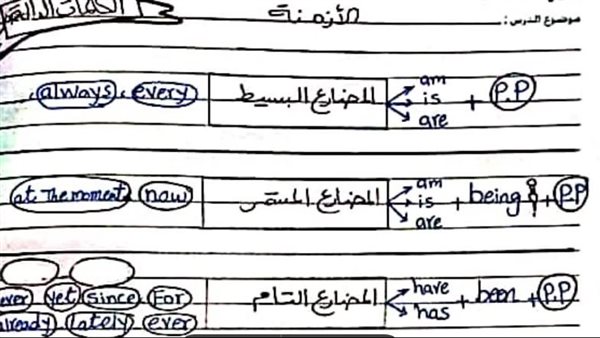 موضوع الدرس : الأزمنة الكلمات الدالة
am
is
are
+ P.P المضارع البسيط every , always ,
am
is
are
+ being + P.P المضارع المستمر now at The moment
have
has
+ been + P.P المضارع التام For since yet ever
ever lately already